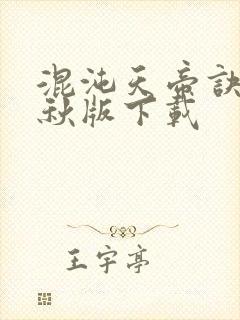 混沌天帝訣
秋版下載
王宇亭